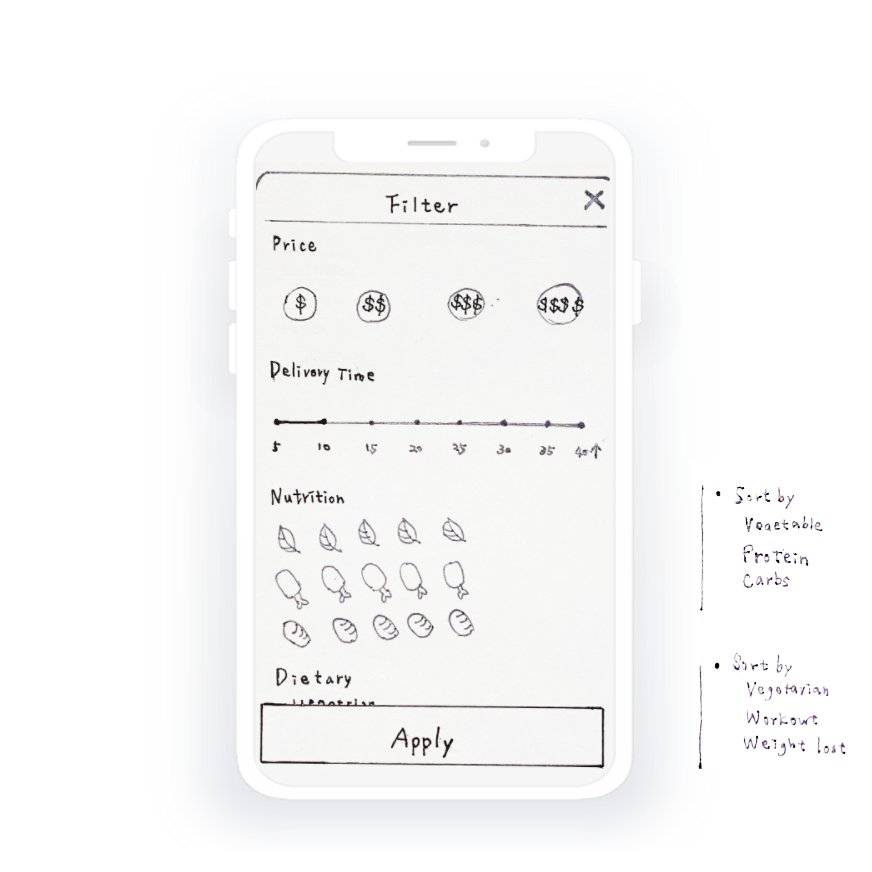 Filter
Price
$ $$ $$$ $$$$
Delivery Time
5 10 15 20 25 30 35 40↑
Nutrition
Dietary
Apply
• Sort by
Vegetable
Protein
Carbs
• Sort by
Vegetarian
Workout
Weight lost